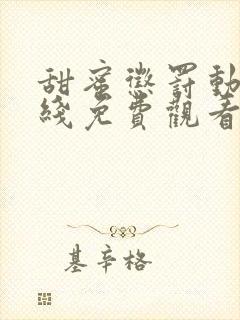 甜蜜懲罰動
綫免費觀看
基辛格